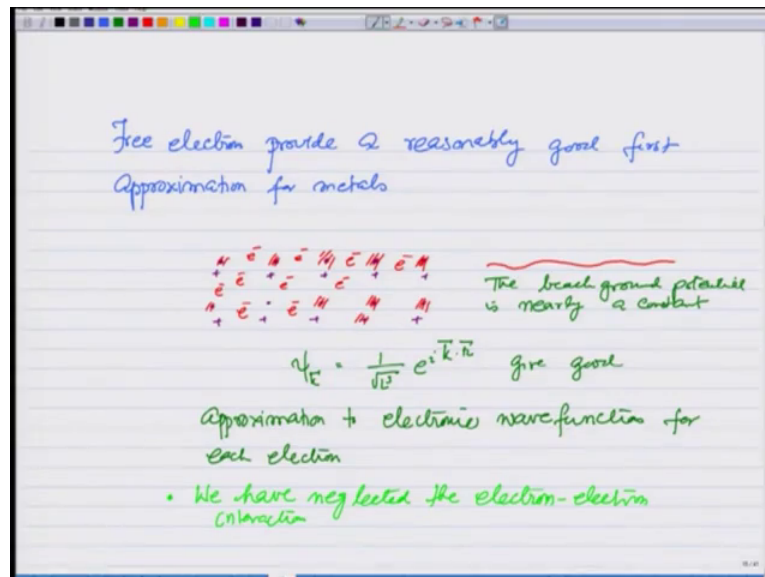 Free electron provide a reasonably good first
approximation for metals
e⁻ e⁻ e⁻ e⁻
+ + + + +
e⁻ e⁻ e⁻ e⁻
e⁻ e⁻
+ + + + +
The background potential
is nearly a constant
ψ_k̄ = 1/√L³ e^{i k̄·r̄} give good
approximation to electronic wavefunction for
each electron
• We have neglected the electron-electron
interaction